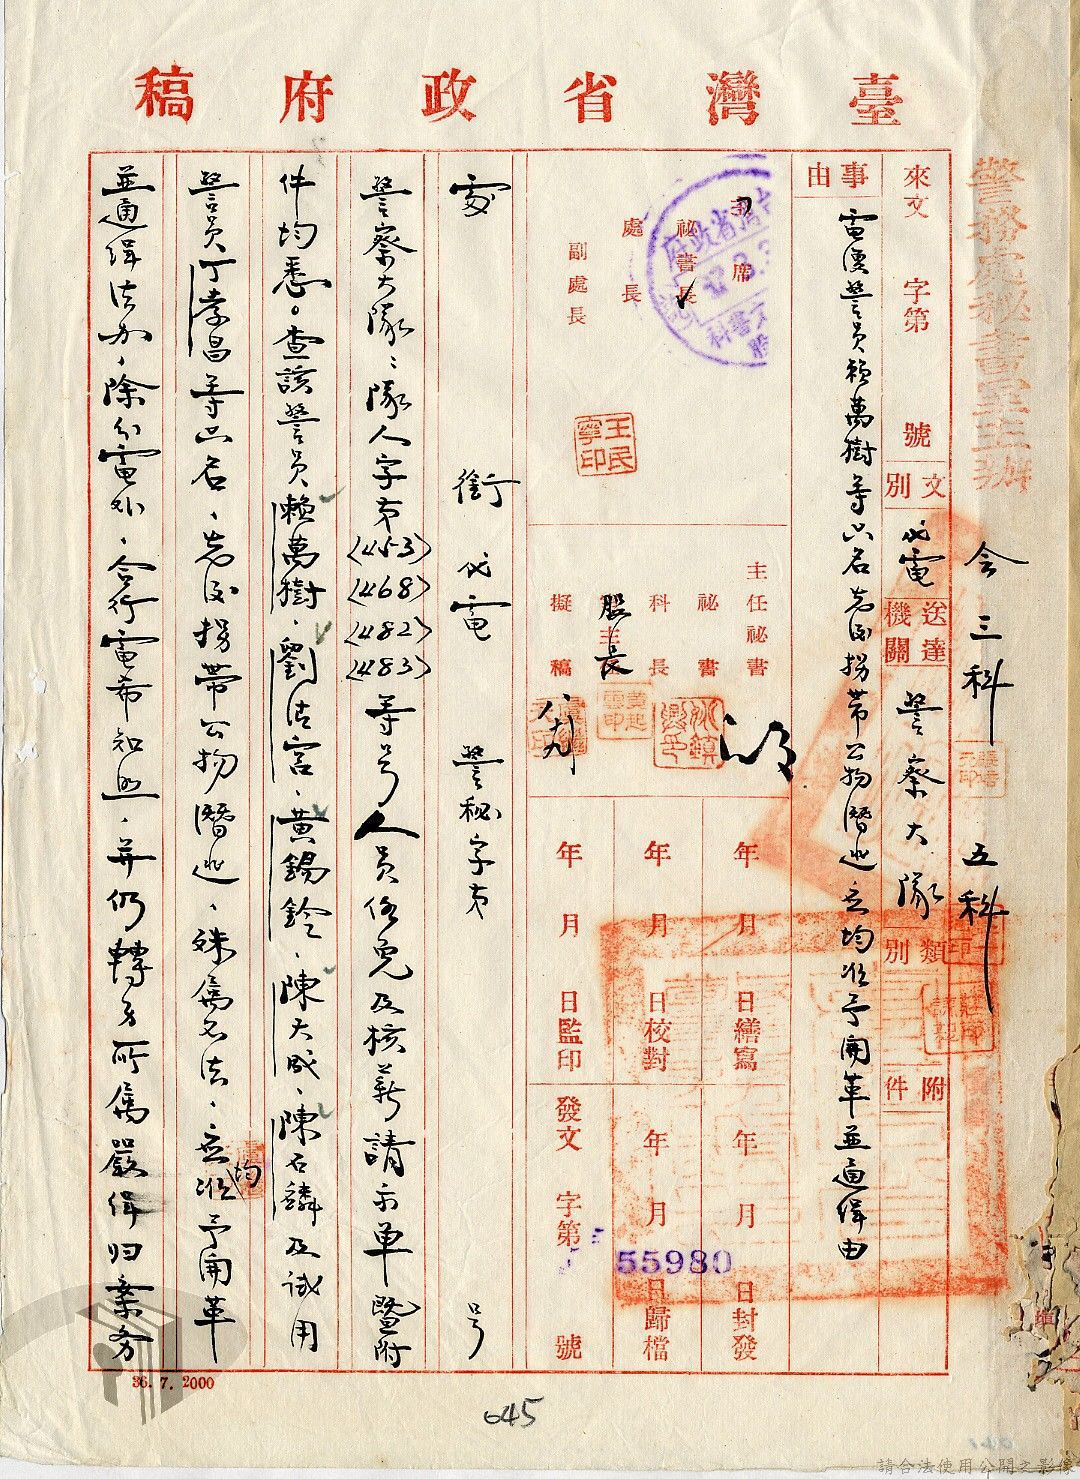 臺灣省政府稿
警務處秘書室主辦
会三科 五科
來文 字第 號
文別 代電
送達機關 警察大隊
類別
附件
事由
電復警員賴萬樹等六名先後拐帶公物潛逃應均准予開革並通緝由
主席
秘書長
處長
副處長
王民寧印
主任秘書
秘書
科長
股長
主
擬稿
年 月 日繕寫
年 月 日校對
年 月 日監印
年 月 日封發
年 月 日歸檔
發文 字第 號
55980
處 銜 代電 警秘字第 号
警察大隊:隊人字第〈453〉〈468〉〈482〉〈483〉等号人員任免及核薪請示单暨附
件均悉。查該警員賴萬樹、劉 宮、黃錫銓、陳大成、陳石麟及試用
警員丁孝昌等六名、先後拐帶公物潛逃、殊屬不法、应均准予開革
並通緝法办、除分電外、合行電希知照、并仍轉多所屬嚴緝归案为
36. 7. 2000
645
請合法使用公開之影像